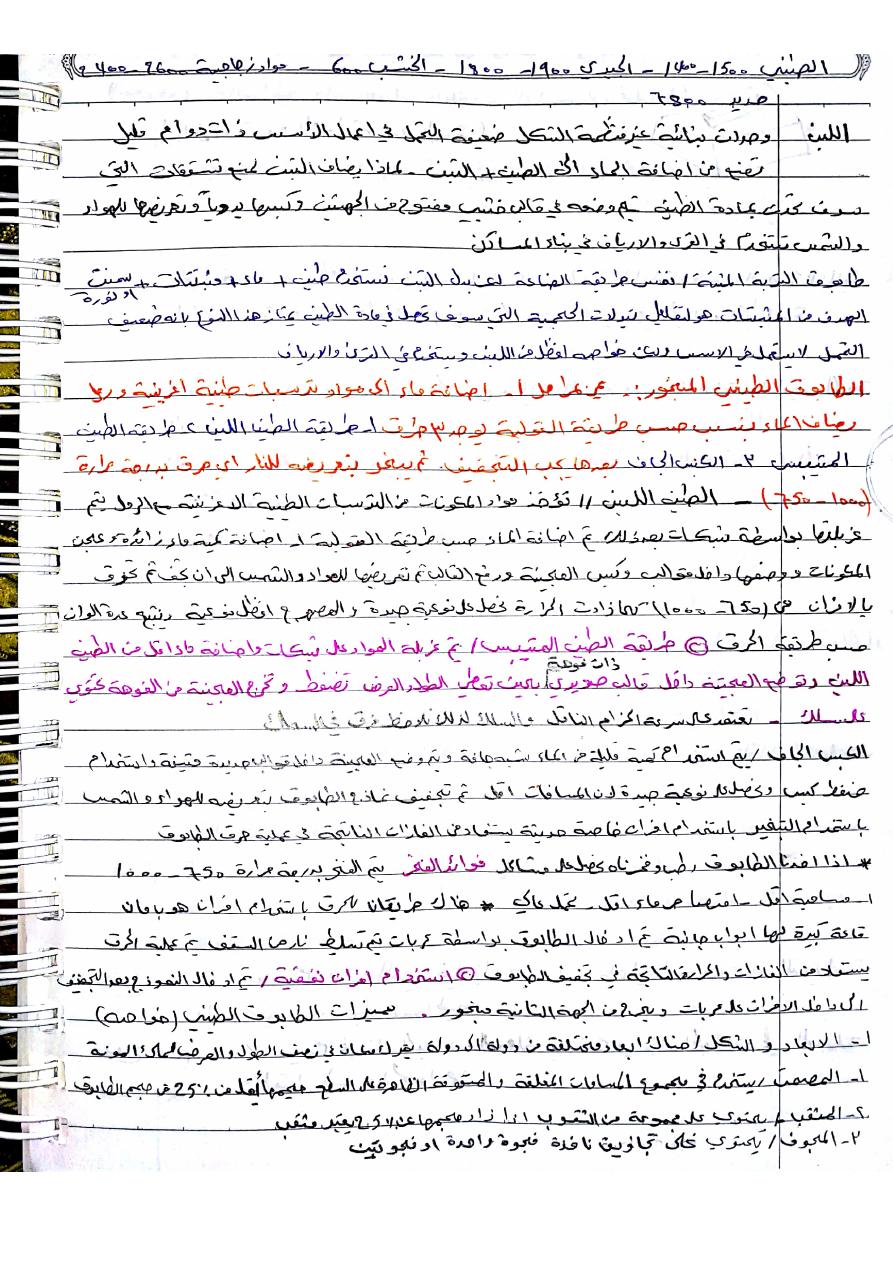 الطيني 1500-1400 - الجيري 1900-1800 - الخشب 600 - مواد زجاجية 2600-400
حديد 7800
اللبن وحدات بنائية غير منتظمة الشكل ضعيفة التحمل في اعمال الأسس ذات دوام قليل
تصنع من اضافة الماء الى الطين + التبن - لماذا يضاف التبن لمنع تشققات التي
سوف تحدث بمادة الطين يتم وضعه في قالب خشبي مفتوح من الجهتين وكبسها يدوياً وتعريضها للهواء
والشمس تستخدم في القرى والارياف في بناء المساكن
طابوق التربة المثبتة / نفس طريقة الصناعة لاعن بدل التبن نستخدم طين + ماء + مثبتات + سمنت
او نورة
الهدف من المثبتات هو لتقليل تبدلات الحجمية التي سوف تحصل في مادة الطين يمتاز هذا النوع بانه ضعيف
التحمل لايستعمل في الاسس ولكن خواصه افضل من اللبن ويستخدم في القرى والارياف
الطابوق الطيني المفخور: يمر بمراحل 1- اضافة ماء الى مواد ترسبات طينية الغرينية و
يضاف الماء بنسب حسب طريقة القولبة يوجد 3 طرق 1- طريقة الطين اللين 2 طريقة الطين
المتيبس 3- الكبس الجاف بعدها يجب التجفيف. ثم يفخر بتعريضه للنار اي حرق بدرجة حرارة
(1000-750) - الطين اللين // تؤخذ مواد المكونات من الترسبات الطينية الغرينية مع الرمل يتم
غربلتها بواسطة شبكات بعد ذلك تم اضافة الماء حسب طريقة القولبة 1- اضافة كمية ماء زائدة وعجن
المكونات ووضعها داخل قوالب وكبس العجينة ورفع القالب ثم تعريضها للهواء والشمس الى ان تجف ثم تحرق
بالافران من (750-1000) كلما زادت الحرارة نحصل على نوعية جيدة و افضل نوعية وينتج عدة الوان
حسب طريقة الحرق 2 طريقة الطين المتيبس / يتم غربلة المواد على شبكات واضافة ماء اقل من الطين
ذات فوهة
اللين وتوضع العجينة داخل قالب حديدي بحيث تعطي الطول والعرض تضغط و تخرج العجينة من الفوهة تحتوي
على سلك - تعتمد على سرعة الحزام الناقل والسلك لذلك نلاحظ فرق في السمك
الكبس الجاف / يتم استخدام كمية قليلة من الماء شبه جافة ويتم وضع العجينة داخل قوالب حديدية متينة واستخدام
ضغط كبس ونحصل على نوعية جيدة لان المسافات اقل ثم تجفيف نماذج الطابوق بتعريضه للهواء والشمس
باستخدام افران خاصة حديثة يستفاد من الغازات الناتجة في عملية حرق الطابوق
* اذا اخذنا الطابوق رطب وفخرناه نحصل على مشاكل فوائد الفخر يتم الفخر بدرجة حرارة 750-1000
1- مسامية اقل - امتصاص ماء اقل - تحمل عالي * هناك طريقتان للحرق باستخدام افران هوبمان
قاعة كبيرة لها ابواب جانبية تم ادخال الطابوق بواسطة عربات يتم تسليط نار من السقف يتم عملية الحرق
يستفاد من الغازات والحرارة الناتجة في تجفيف الطابوق 2 استخدام افران نفقية / تم ادخال النموذج بعد التجفيف
الى داخل الافران على عربات ويخرج من الجهة الثانية مفخور. مميزات الطابوق الطيني (خواصه)
1- الابعاد و الشكل / هناك ابعاد مختلفة من دولة الى دولة نصف الطول والعرض المونة
1- المصمت / يستخدم في مجموع المسافات المغلقة و المستوية الظاهرة على السطح حجمها أقل من 25% من حجم الطابوق
2- المثقب / يحتوي على مجموعة من الثقوب اذا زاد حجمها عن 25% يعتبر مثقب
3- المجوف / يحتوي على تجاويف نافذة فجوة واحدة او فجوتين